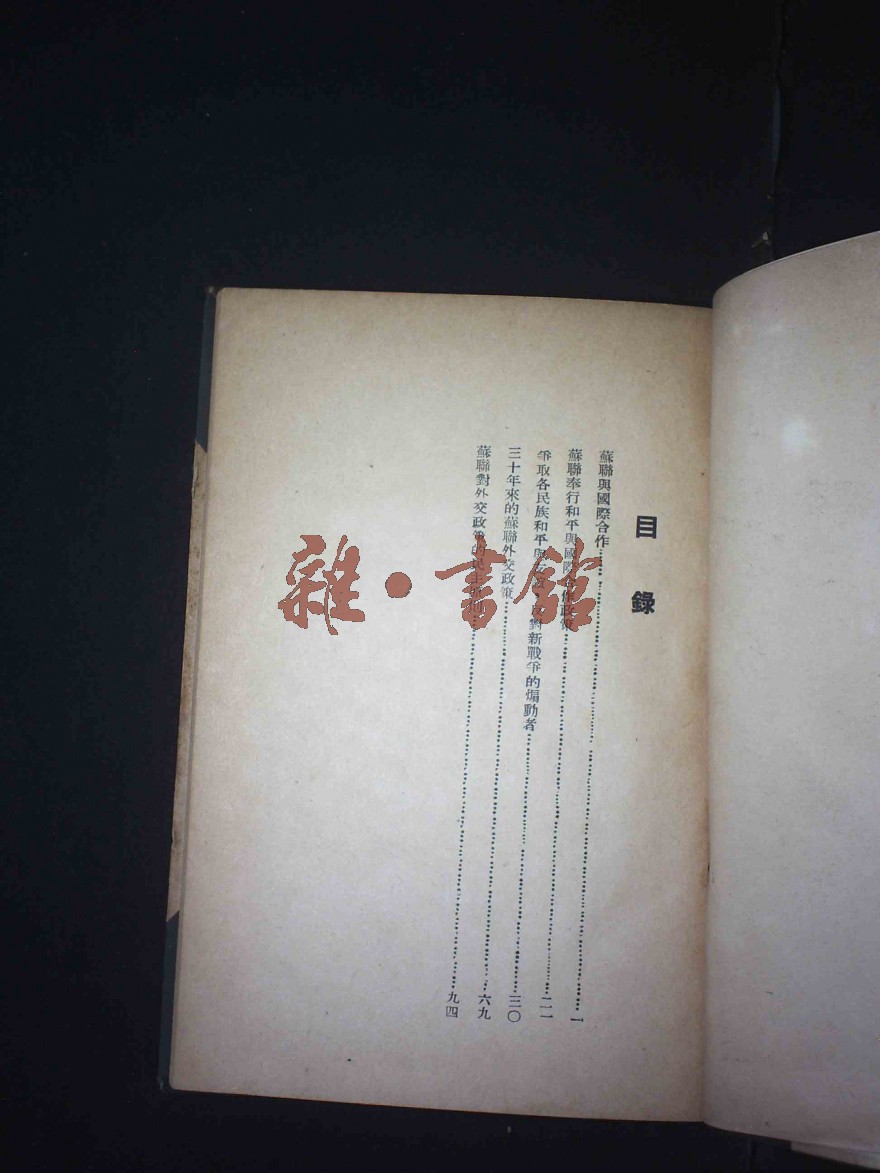 目錄
蘇聯與國際合作……一
蘇聯奉行和平與國際合作政策……二一
爭取各民族和平與反對新戰爭的煽動者……三〇
三十年來的蘇聯外交政策……六九
蘇聯對外交政策的民主原則……九四
雜·書館